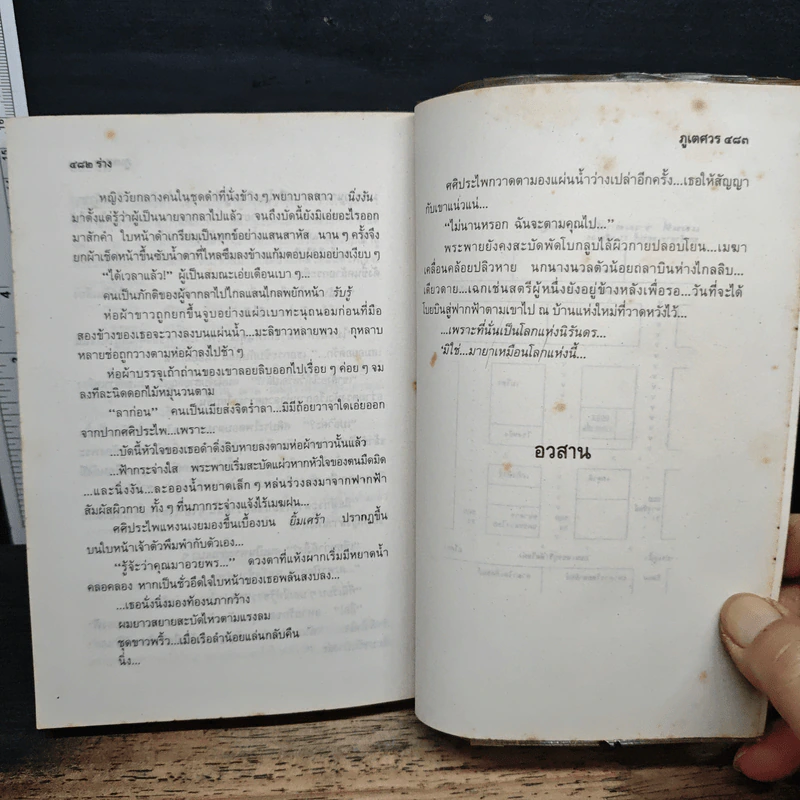 ๔๘๒ ร่าง
หญิงวัยกลางคนในชุดดำที่นั่งข้าง ๆ พยาบาลสาว นิ่งงัน
มาตั้งแต่รู้ว่าผู้เป็นนายจากลาไปแล้ว จนถึงบัดนี้ยังมิเอ่ยอะไรออก
มาสักคำ ใบหน้าดำเกรียมเป็นทุกข์อย่างแสนสาหัส นาน ๆ ครั้งจึง
ยกผ้าเช็ดหน้าขึ้นซับน้ำตาที่ไหลซึมลงข้างแก้มตอบผอมอย่างเงียบ ๆ
“ได้เวลาแล้ว!” ผู้เป็นสมณะเอ่ยเตือนเบา ๆ...
คนเป็นภักดิของผู้จากลาไปไกลแสนไกลพยักหน้า รับรู้
ห่อผ้าขาวถูกยกขึ้นจูบอย่างแผ่วเบาทะนุถนอมก่อนที่มือ
สองข้างของเธอจะวางลงบนแผ่นน้ำ...มะลิขาวหลายพวง กุหลาบ
หลายช่อถูกวางตามห่อผ้าลงไปช้า ๆ
ห่อผ้าบรรจุเถ้าถ่านของเขาลอยลิบออกไปเรื่อย ๆ ค่อย ๆ จม
ลงทีละนิดดอกไม้หมุนวนตาม
“ลาก่อน” คนเป็นเมียส่งจิตร่ำลา...มิมีถ้อยวาจาใดเอ่ยออก
จากปากศศิประไพ...เพราะ...
...บัดนี้หัวใจของเธอดำดิ่งลิบหายลงตามห่อผ้าขาวนั้นแล้ว
...ฟ้ากระจ่างใส พระพายเริ่มสะบัดแผ่วหากหัวใจของตนมืดมิด
...และนิ่งงัน...ละอองน้ำหยาดเล็ก ๆ หล่นร่วงลงมาจากฟากฟ้า
สัมผัสผิวกาย ทั้ง ๆ ที่นภากระจ่างแจ้งไร้เมฆฝน...
ศศิประไพแหงนเงยมองขึ้นเบื้องบน ยิ้มเศร้า ปรากฏขึ้น
บนใบหน้าเจ้าตัวพึมพำกับตัวเอง...
“รู้จ้ะว่าคุณมาอวยพร...” ดวงตาที่แห้งผากเริ่มมีหยาดน้ำ
คลอคลอง หากเป็นชั่วอึดใจใบหน้าของเธอพลันสงบลง...
...เธอนั่งนิ่งมองท้องนภากว้าง
ผมยาวสยายสะบัดไหวตามแรงลม
ชุดขาวพริ้ว...เมื่อเรือลำน้อยแล่นกลับคืน
นิ่ง...
ภูเตศวร ๔๘๓
ศศิประไพกวาดตามองแผ่นน้ำว่างเปล่าอีกครั้ง...เธอให้สัญญา
กับเขาแน่วแน่...
“ไม่นานหรอก ฉันจะตามคุณไป...”
พระพายยังคงสะบัดพัดโบกลูบไล้ผิวกายปลอบโยน...เมฆา
เคลื่อนคล้อยปลิวหาย นกนางนวลตัวน้อยถลาบินห่างไกลลิบ...
เดียวดาย...เฉกเช่นสตรีผู้หนึ่งยังอยู่ข้างหลังเพื่อรอ...วันที่จะได้
โบยบินสู่ฟากฟ้าตามเขาไป ณ บ้านแห่งใหม่ที่วาดหวังไว้...
...เพราะที่นั่นเป็นโลกแห่งนิรันดร...
'มิใช่...มายาเหมือนโลกแห่งนี้...
อวสาน